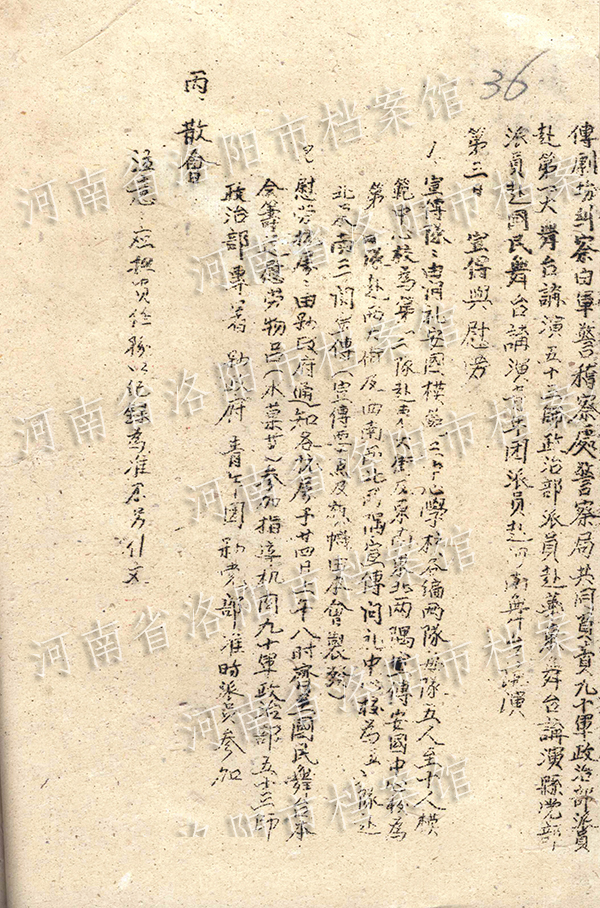 36
傳劇場糾察由軍警稽察處警察局共同負責九十軍政治部派員
赴第一大舞台講演五十三師政治部派員赴舞台講演縣党部
派員赴國民舞台講演青年团派員赴河南舞台講演
第三日 宣傳與慰劳
1、宣傳隊：由洛安國模第二中心學校各編兩隊每隊五人至十人模
範中心校為第一二隊赴東大街及東南東北兩隅宣傳安國中心校為
第隊赴西大街及西南西北兩隅宣傳中校為五隊赴
北南三關宣傳（宣傳要点及旗幟由本會製發）
2、慰劳：由縣政府通知各於廿四日上午八时齊至國民舞台本
会籌慰劳物品（水菓等）参加指導机関九十軍政治部五十三師
政治部專署縣政府青年团縣党部准时派員参加
丙、散會
注意：應担負任務以紀錄為准不另行文
河南省洛阳市档案馆